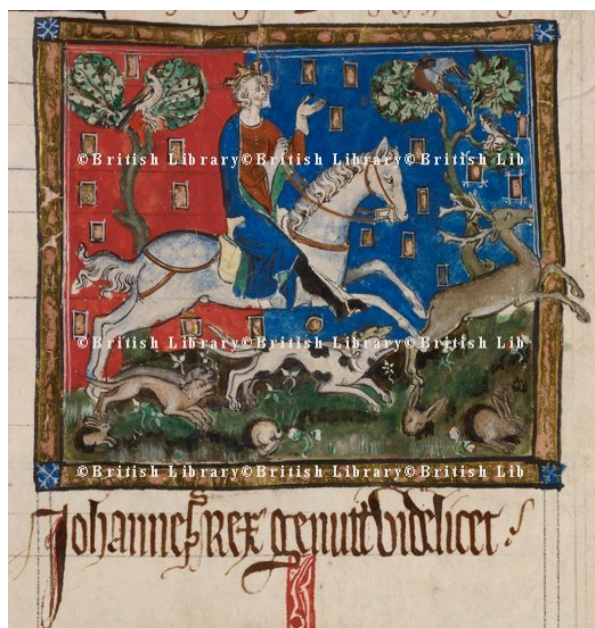 ©British Library©British Library©British Lib
©British Library©British Library©British Lib
©British Library©British Library©British Lib
Johannes rex genuit videlicet